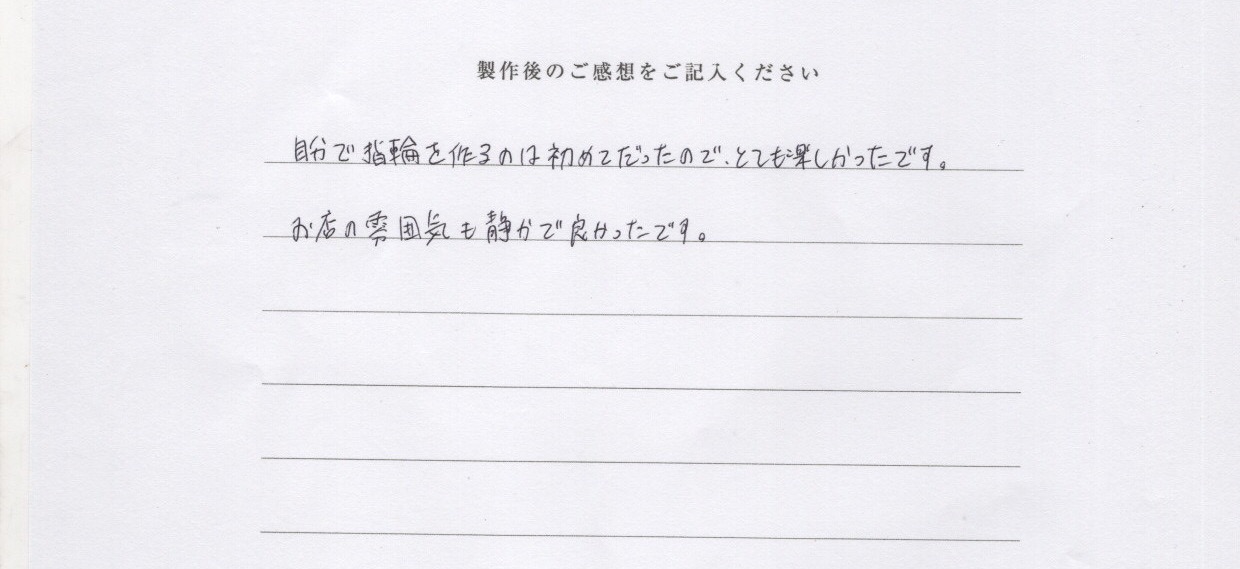 製作後のご感想をご記入ください
自分で指輪を作るのは初めてだったので、とても楽しかったです。
お店の雰囲気も静かで良かったです。